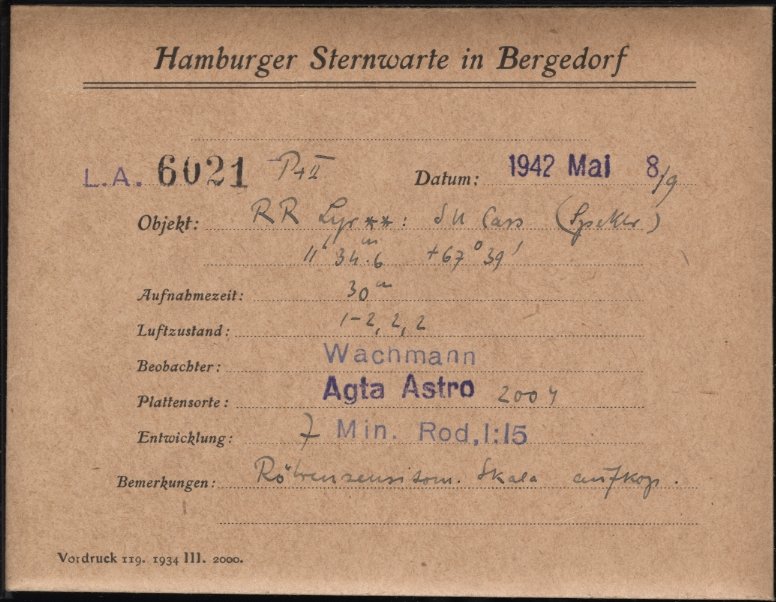 Hamburger Sternwarte in Bergedorf
L.A. 6021 P42 Datum: 1942 Mai 8/9
Objekt: RR Lyr **: SU Cass (Spektr.)
11h 34m.6 +67° 39'
Aufnahmezeit: 30m
Luftzustand: 1-2, 2, 2
Beobachter: Wachmann
Plattensorte: Agfa Astro
Entwicklung: 7 Min. Rod,1:15
Bemerkungen: Röhrensensitom. Skala aufkop.
Vordruck 119. 1934 III. 2000.